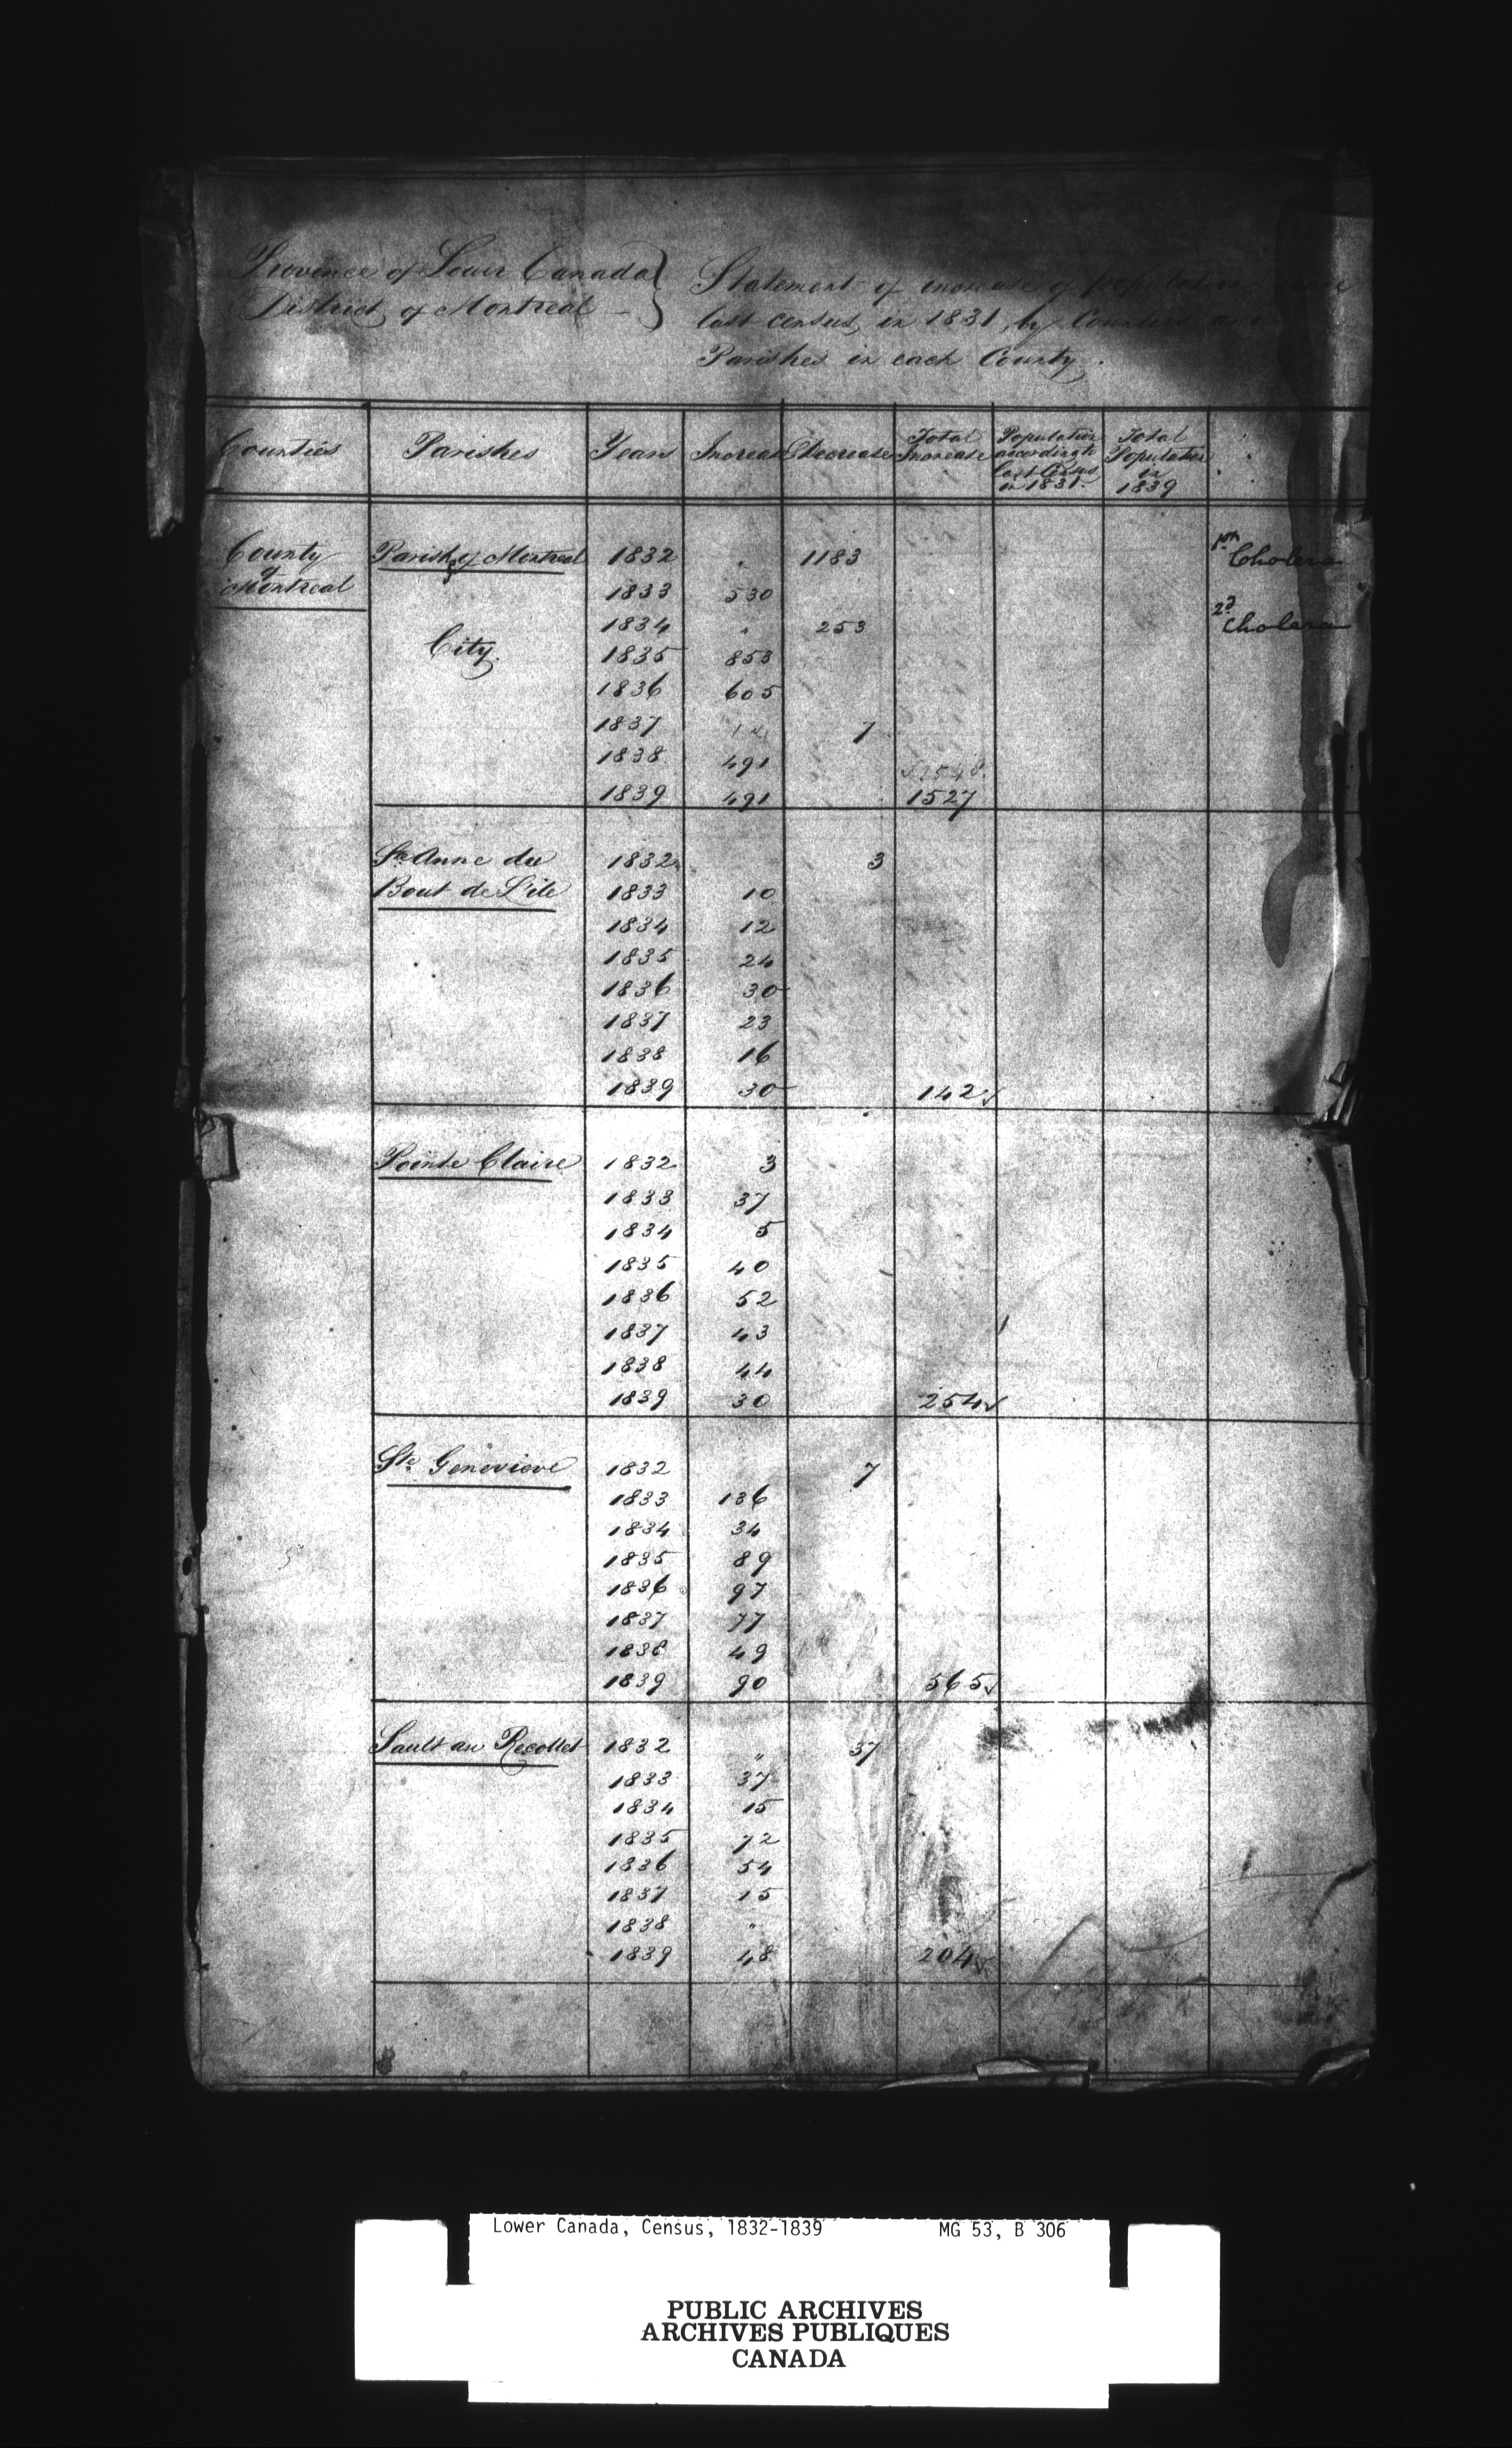 Province of Lower Canada }
District of Montreal
Statement of increase of population
last census in 1831, by Counties and
Parishes in each County.
Counties Parishes Years Increase Decrease Total Increase Population according to last Census in 1831. Total Population in 1839
County of Montreal Parish of Montreal 1832 " 1183 1st Cholera
1833 530
1834 " 253 2d Cholera
City. 1835 853
1836 605
1837 7
1838 491 1548
1839 491 1527
Ste Anne du 1832 3
Bout de L'ile 1833 10
1834 12
1835 24
1836 30
1837 23
1838 16
1839 30 142
Pointe Claire 1832 3
1833 37
1834 5
1835 40
1836 52
1837 43
1838 44
1839 30 254
Ste Genevieve 1832 7
1833 136
1834 34
1835 89
1836 97
1837 77
1838 49
1839 90 565
Sault au Recollet 1832 " 37
1833 37
1834 15
1835 72
1836 54
1837 15
1838 "
1839 48 204
Lower Canada, Census, 1832-1839 MG 53, B 306
PUBLIC ARCHIVES
ARCHIVES PUBLIQUES
CANADA